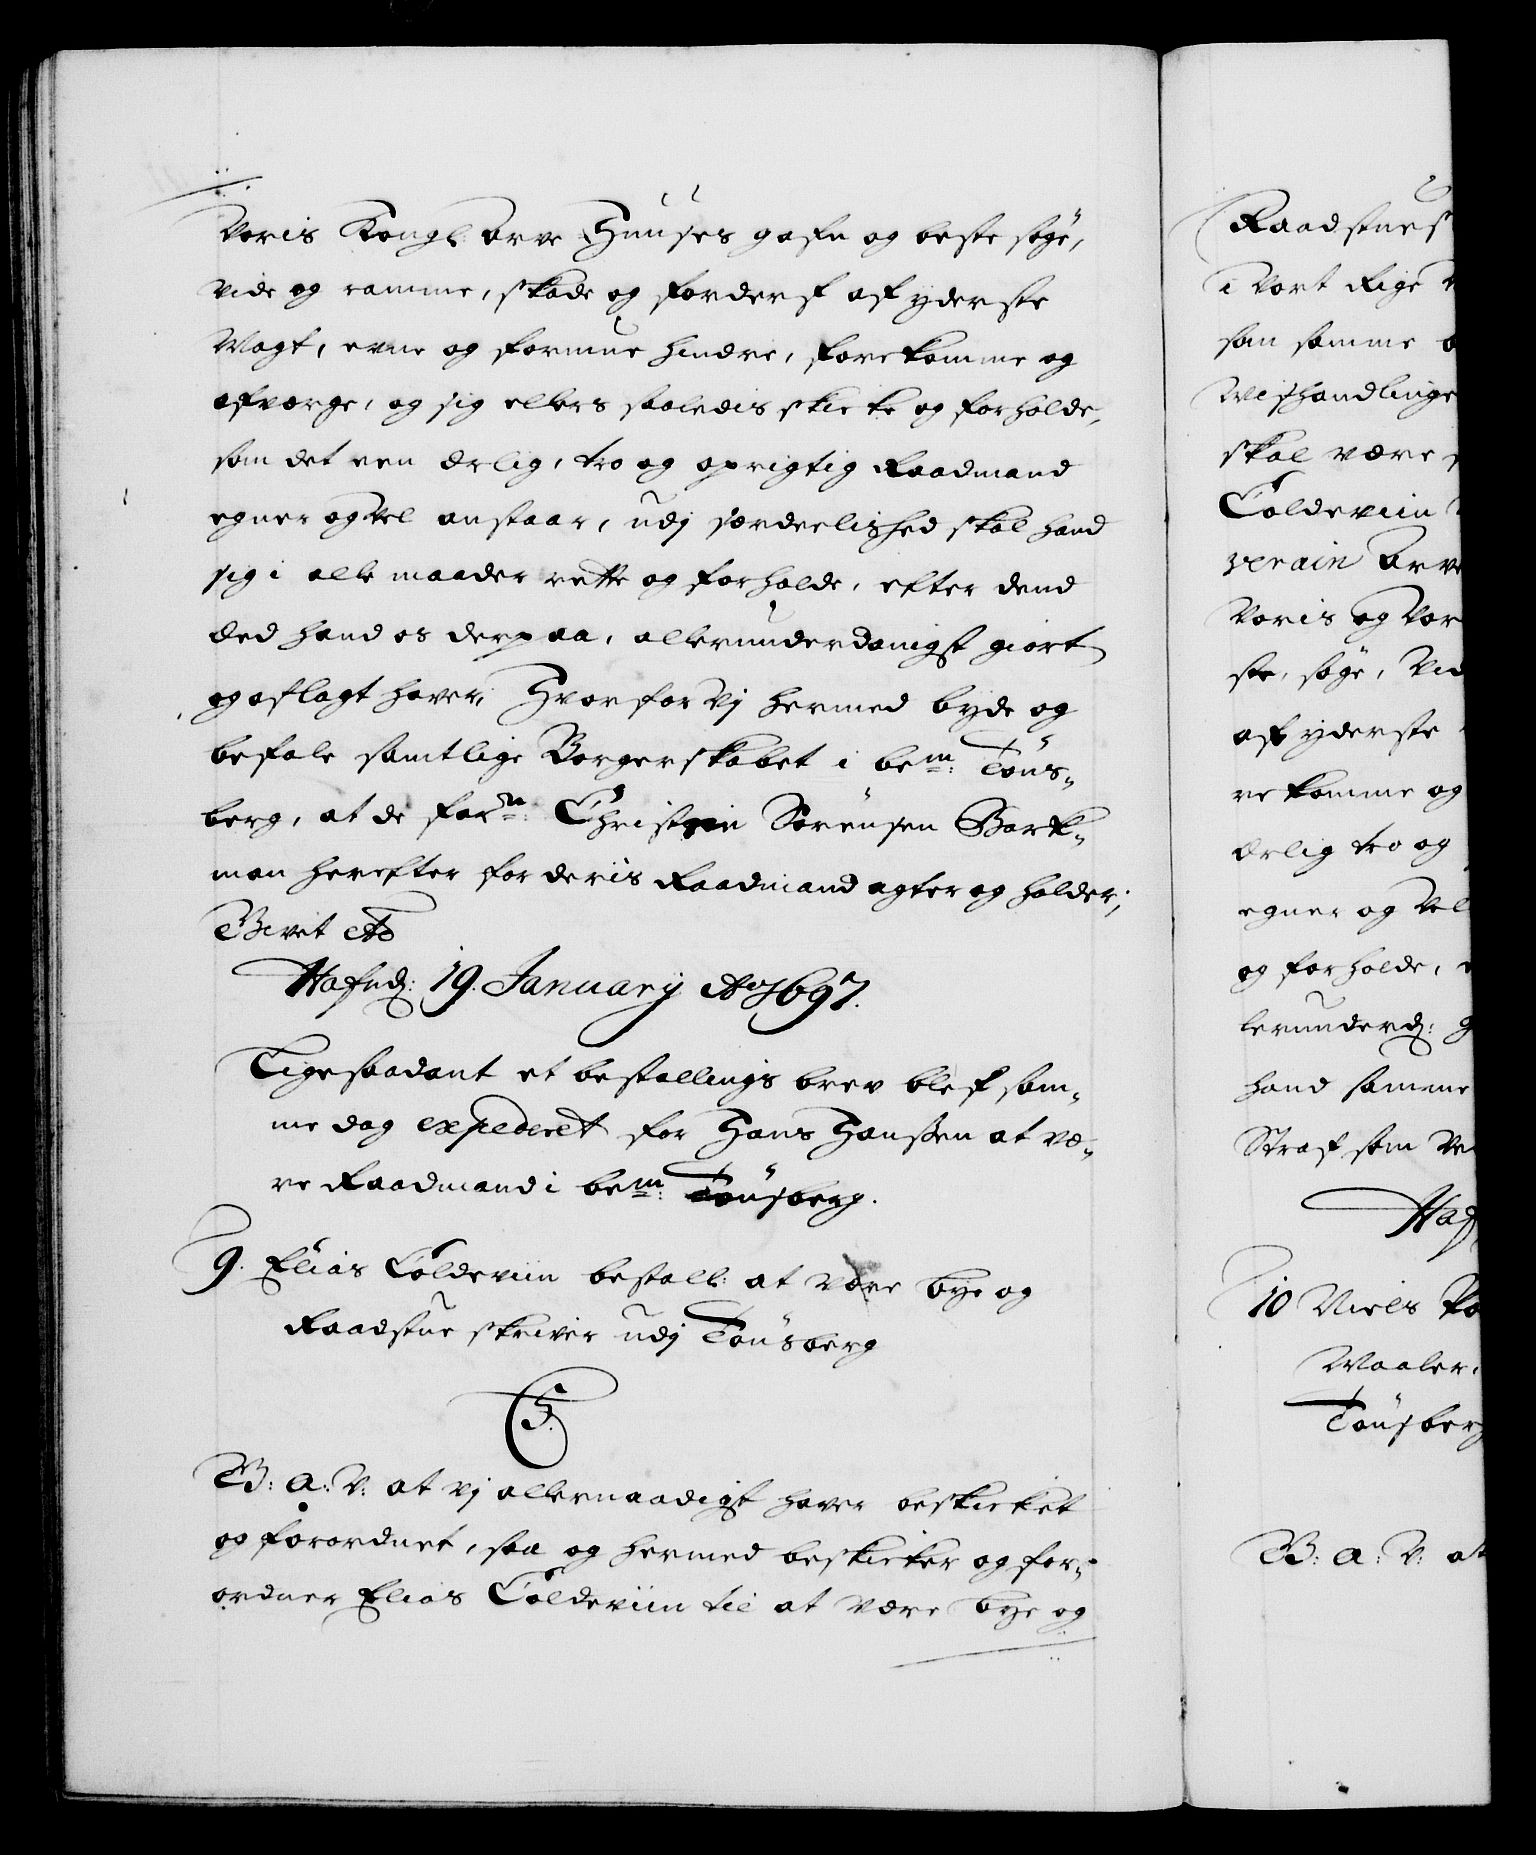 Voris Kongl: Arve Huuses gafn og beste söge,
vide og ramme, skade og forderf af yderste
Magt, evne og formue hindre, forekomme og
afværge, og sig ellers saaledis skicke og forholde,
som det een ærlig, tro og oprigtig Raadmand
egner og vel anstaar, udj særdeelished skal hand
sig i alle maader rette og forholde, efter dend
Æd hand os derpaa, allerunderdanigst giort
og aflagt haver, Hvorfor Vj hermed byde og
befale samtlige Borgerskabet i bem: Töns-
berg, at de forn: Christen Sörensen Bark-
man herefter for deris Raadmand agter og holder;
Givet etc
Hafnd: 19. January Ao 1697.
Ligesaadant et bestallings brev blef sam-
me dag expederet for Hans Hanssen at væ-
re Raadmand i bem: Tönsberg.
9. Elias Coldeviin bestall: at være bye og
Raadstue skriver udj Tönsberg
C5.
G: A: V: at vj allernaadigst haver beskicket
og forordnet, saa og hermed beskicker og for-
ordner Elias Coldeviin til at være bye og
Raadstues
i Vort Rige
som samme
Mishandlinge
skal være
Coldeviin
verain Arve
Voris og Vor
ste, söge, Vid
af yderste
rekomme og
ærlig tro og
egner og vel
og forholde,
lerunderd: g
hand samme
Straf som ve
Haf
10 Niels
Maaler,
Tönsberg
G: A: V: at